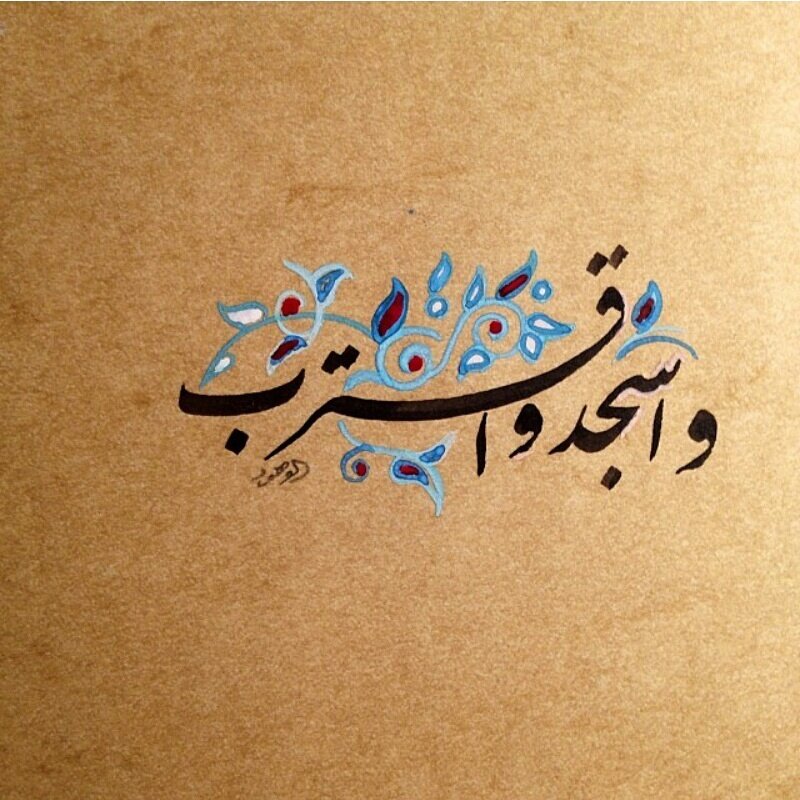 واسجد واقترب